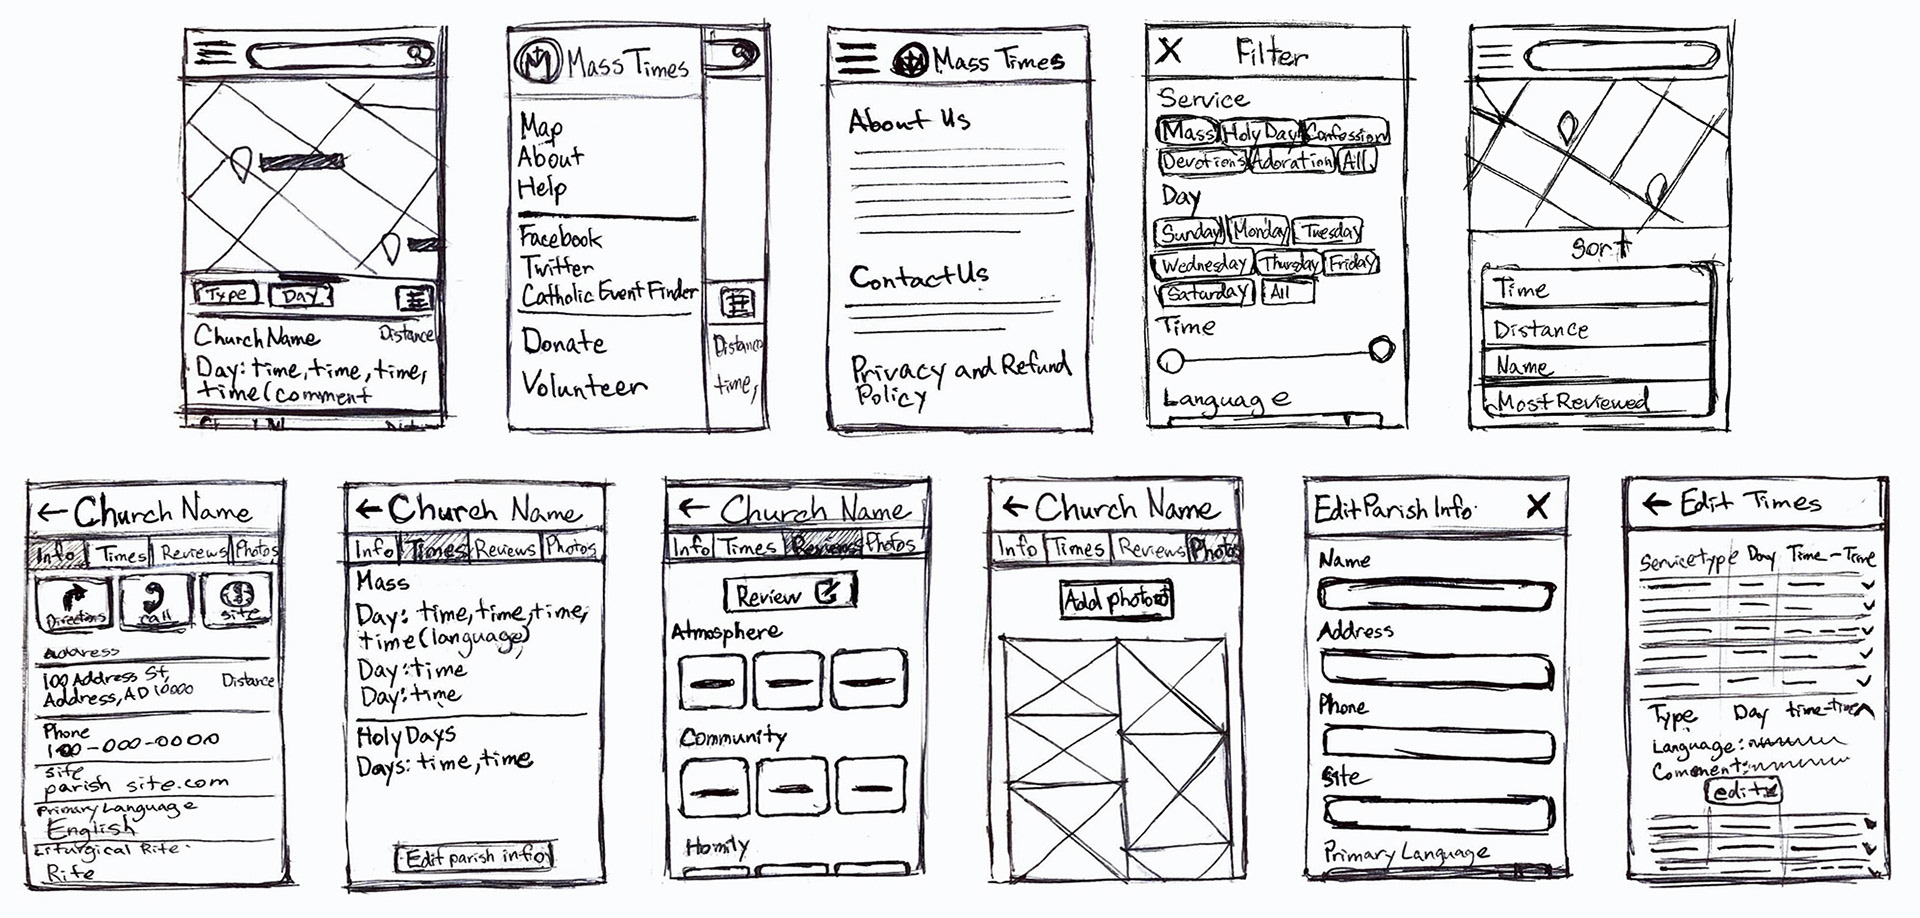 Type Day
Church Name Distance
Day: time, time, time,
time (comment
Mass Times
Map
About
Help
Facebook
Twitter
Catholic Event Finder
Donate
Volunteer
Distance
time,
Mass Times
About Us
Contact Us
Privacy and Refund
Policy
X Filter
Service
Mass Holy Day Confession
Devotions Adoration All
Day
Sunday Monday Tuesday
Wednesday Thursday Friday
Saturday All
Time
Language
Sort
Time
Distance
Name
Most Reviewed
← Church Name
Info Times Reviews Photos
Directions call site
Address
100 Address St,
Address, AD 10000 Distance
Phone
100-000-0000
site
parish site.com
Primary Language
English
Liturgical Rite
Rite
← Church Name
Info Times Reviews Photos
Mass
Day: time, time, time,
time (language)
Day: time
Day: time
Holy Days
Days: time, time
Edit parish info
← Church Name
Info Times Reviews Photos
Review
Atmosphere
Community
Homily
← Church Name
Info Times Reviews Photos
Add photo
Edit Parish Info X
Name
Address
Phone
Site
Primary Language
← Edit Times
Service type Day Time-Time
Type Day time-time
Language:
Comment:
edit